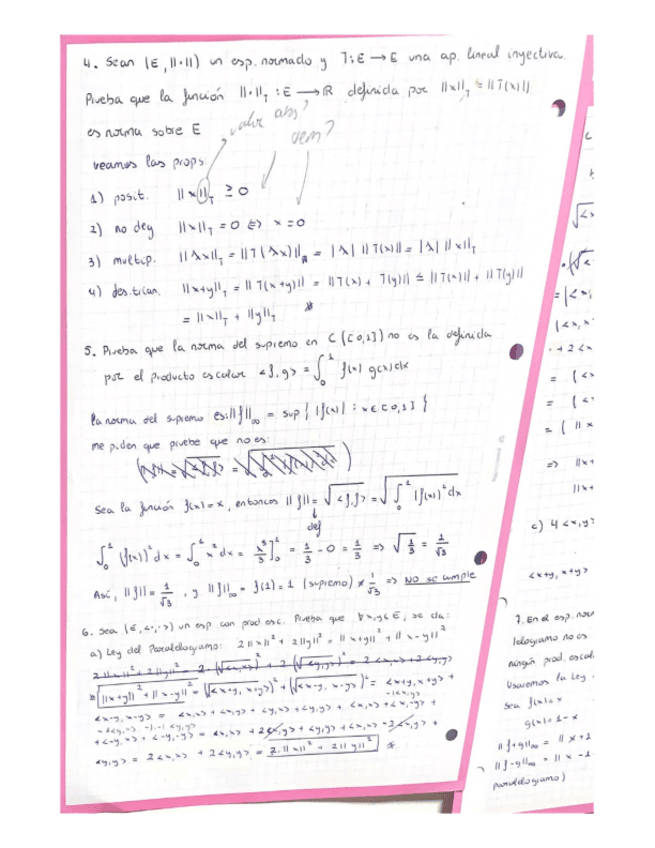 4. Sean (E, ||·||) un esp. normado y T: E → E una ap. lineal inyectiva.
Prueba que la función ||·||_T : E → ℝ definida por ||x||_T = ||T(x)||
es norma sobre E
valor abs?
dem?
veamos las props:
1) posit. ||x||_T ≥ 0
2) no deg ||x||_T = 0 ⇔ x = 0
3) multip. ||λx||_T = ||T(λx)|| = |λ| ||T(x)|| = |λ| ||x||_T
4) des. trian. ||x+y||_T = ||T(x+y)|| = ||T(x) + T(y)|| ≤ ||T(x)|| + ||T(y)||
= ||x||_T + ||y||_T
5. Prueba que la norma del supremo en C([0,1]) no es la definida
por el producto escalar <f,g> = ∫₀¹ f(x) g(x) dx
la norma del supremo es: ||f||_∞ = sup{ |f(x)| : x ∈ [0,1] }
me piden que pruebe que no es:
Sea la función f(x) = x, entonces ||f|| = √<f,f> = √∫₀¹ (f(x))² dx
↓
def
∫₀¹ (f(x))² dx = ∫₀¹ x² dx = x³/3 ]₀¹ = 1/3 - 0 = 1/3 ⇒ √1/3 = 1/√3
Así, ||f|| = 1/√3, y ||f||_∞ = f(1) = 1 (supremo) ≠ 1/√3 ⇒ NO se cumple
6. Sea (E, <·,·>) un esp con prod. esc. Prueba que ∀x,y ∈ E, se da:
a) Ley del Paralelogramo: 2||x||² + 2||y||² = ||x+y||² + ||x-y||²
2||x||² + 2||y||² = 2·(√<x,x>)² + 2(√<y,y>)² = 2<x,x> + 2<y,y>
||x+y||² + ||x-y||² = (√<x+y, x+y>)² + (√<x-y, x-y>)² = <x+y, x+y> +
<x-y, x-y> = <x,x> + <x,y> + <y,x> + <y,y> + <x,x> + <x,-y> +
+ <-y,x> + <-y,-y> = <x,x> + 2<x,y> + <y,y> + <x,x> - 2<x,y> +
<y,y> = 2<x,x> + 2<y,y> = 2||x||² + 2||y||²
c) 4<x,y>
<x+y, x+y>
7. En el esp.
no es
ningún prod.
Usaremos la Ley
sea f(x)=x
g(x)=1-x
||f+g||_∞ = ||x+1
||f-g||_∞ = ||x-1
paralelogramo)